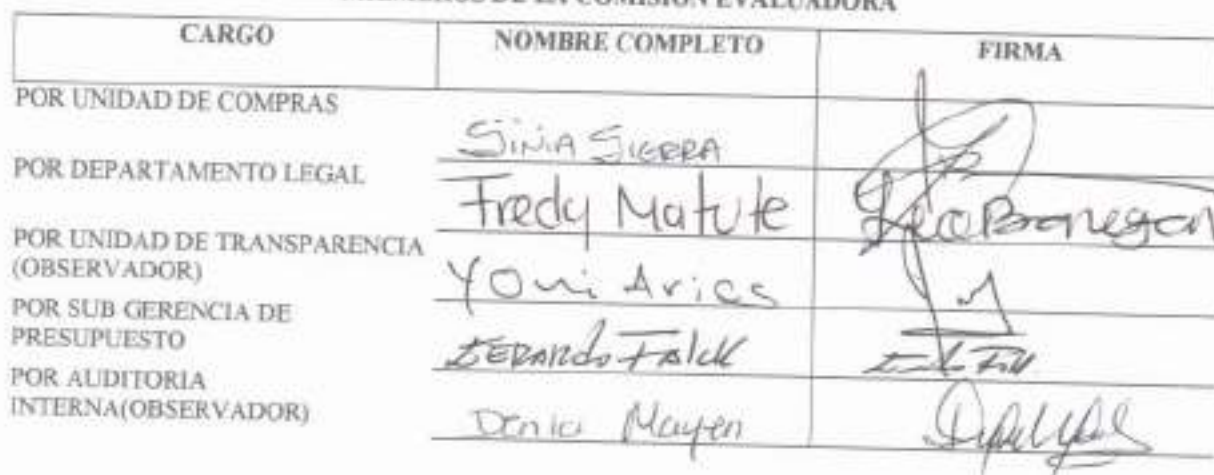 DE LA COMISION EVALUADORA
CARGO NOMBRE COMPLETO FIRMA
POR UNIDAD DE COMPRAS
SINIA SIERRA
POR DEPARTAMENTO LEGAL
Fredy Matute
POR UNIDAD DE TRANSPARENCIA
(OBSERVADOR)
YOni Arias
POR SUB GERENCIA DE
PRESUPUESTO
Falck
POR AUDITORIA
INTERNA(OBSERVADOR)
Denia Mayen